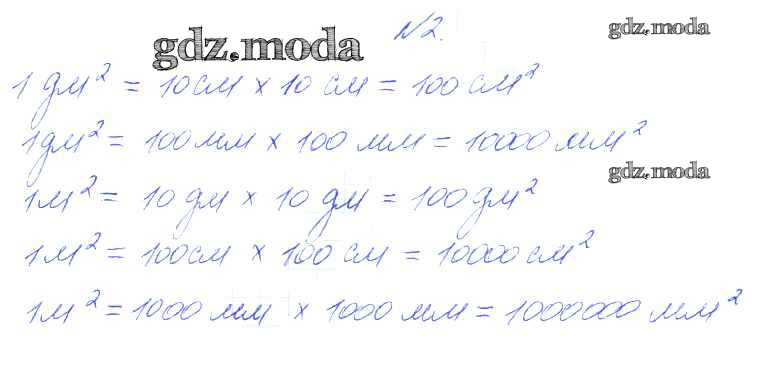 №2.
gdz.moda
gdz.moda
1 дм² = 10 см × 10 см = 100 см²
1 дм² = 100 мм × 100 мм = 10000 мм²
gdz.moda
1 м² = 10 дм × 10 дм = 100 дм²
1 м² = 100 см × 100 см = 10000 см²
1 м² = 1000 мм × 1000 мм = 1000000 мм²